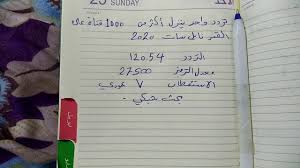 25 SUNDAY
الأحد
تردد واحد ينزل أكثر من 1000 قناة على
القمر نايل سات 2020
التردد 12054
معدل الترميز 27500
الاستقطاب V عمودي
بحث شبكي